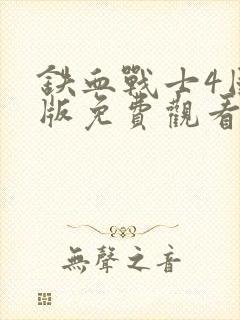 鐵血戰士4
版免費觀看
無聲之音